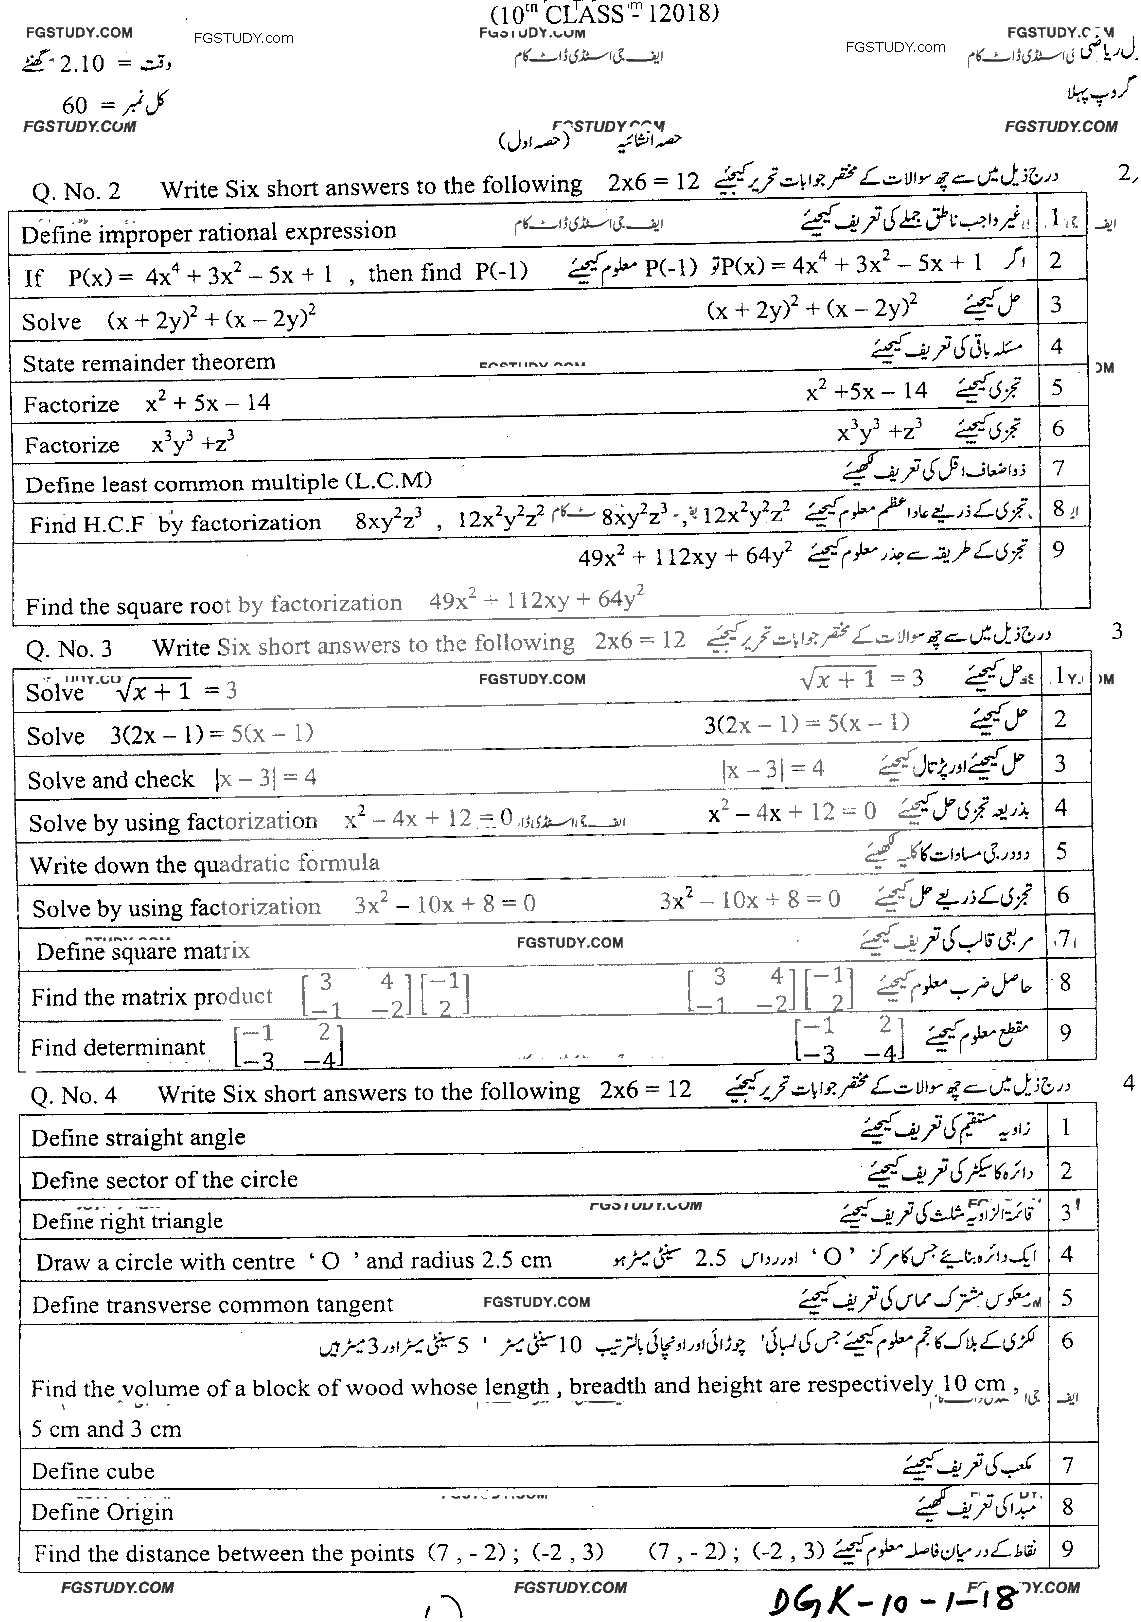 (10th CLASS - 12018)
FGSTUDY.COM FGSTUDY.com FGSTUDY.COM FGSTUDY.com FGSTUDY.COM
وقت = 2.10 گھنٹے ایف جی اسٹڈی ڈاٹ کام ریاضی
کل نمبر = 60 گروپ پہلا
FGSTUDY.COM FGSTUDY.COM FGSTUDY.COM
حصہ انشائیہ (حصہ اول)
Q. No. 2 Write Six short answers to the following 2x6 = 12 درج ذیل میں سے چھ سوالات کے مختصر جوابات تحریر کیجیئے 2
Define improper rational expression ایف جی اسٹڈی ڈاٹ کام غیر واجب ناطق جملے کی تعریف کیجیئے 1
If P(x) = 4x⁴ + 3x² − 5x + 1 , then find P(-1) اگر P(x) = 4x⁴ + 3x² − 5x + 1 تو P(-1) معلوم کیجیئے 2
Solve (x + 2y)² + (x − 2y)² حل کیجیئے (x + 2y)² + (x − 2y)² 3
State remainder theorem FGSTUDY.COM مسئلہ باقی کی تعریف کیجیئے 4
Factorize x² + 5x − 14 تجزی کیجیئے x² +5x − 14 5
Factorize x³y³ +z³ تجزی کیجیئے x³y³ +z³ 6
Define least common multiple (L.C.M) ذواضعاف اقل کی تعریف لکھیئے 7
Find H.C.F by factorization 8xy²z³ , 12x²y²z² تجزی کے ذریعے عاد اعظم معلوم کیجیئے 8xy²z³ , 12x²y²z² 8
تجزی کے طریقہ سے جذر معلوم کیجیئے 49x² + 112xy + 64y² 9
Find the square root by factorization 49x² + 112xy + 64y²
Q. No. 3 Write Six short answers to the following 2x6 = 12 درج ذیل میں سے چھ سوالات کے مختصر جوابات تحریر کیجیئے 3
Solve √x + 1 = 3 FGSTUDY.COM حل کیجیئے √x + 1 = 3 1
Solve 3(2x − 1) = 5(x − 1) حل کیجیئے 3(2x − 1) = 5(x − 1) 2
Solve and check |x − 3| = 4 حل کیجیئے اور پڑتال کیجیئے |x − 3| = 4 3
Solve by using factorization x² − 4x + 12 = 0 بذریعہ تجزی حل کیجیئے x² − 4x + 12 = 0 4
Write down the quadratic formula دو درجی مساوات کا کلیہ لکھیئے 5
Solve by using factorization 3x² − 10x + 8 = 0 تجزی کے ذریعے حل کیجیئے 3x² − 10x + 8 = 0 6
Define square matrix FGSTUDY.COM مربعی قالب کی تعریف کیجیئے 7
Find the matrix product [3 4 −1 −2] [−1 2] حاصل ضرب معلوم کیجیئے [3 4 −1 −2] [−1 2] 8
Find determinant [−1 2 −3 −4] مقطع معلوم کیجیئے [−1 2 −3 −4] 9
Q. No. 4 Write Six short answers to the following 2x6 = 12 درج ذیل میں سے چھ سوالات کے مختصر جوابات تحریر کیجیئے 4
Define straight angle زاویہ مستقیم کی تعریف کیجیئے 1
Define sector of the circle دائرہ کا سیکٹر کی تعریف کیجیئے 2
Define right triangle FGSTUDY.COM قائمۃ الزاویہ مثلث کی تعریف کیجیئے 3
Draw a circle with centre ‘ O ’ and radius 2.5 cm ایک دائرہ بنائیے جس کا مرکز ‘ O ’ اور رداس 2.5 سینٹی میٹر ہو 4
Define transverse common tangent FGSTUDY.COM معکوس مشترک مماس کی تعریف کیجیئے 5
لکڑی کے بلاک کا حجم معلوم کیجیئے جس کی لمبائی ' چوڑائی اور اونچائی بالترتیب 10 سینٹی میٹر ' 5 سینٹی میٹر اور 3 میٹر ہیں 6
Find the volume of a block of wood whose length , breadth and height are respectively 10 cm ,
5 cm and 3 cm
Define cube مکعب کی تعریف کیجیئے 7
Define Origin مبدا کی تعریف لکھیئے 8
Find the distance between the points (7 , - 2) ; (-2 , 3) نقاط کے درمیان فاصلہ معلوم کیجیئے (7 , - 2) ; (-2 , 3) 9
FGSTUDY.COM FGSTUDY.COM
DGK-10-1-18